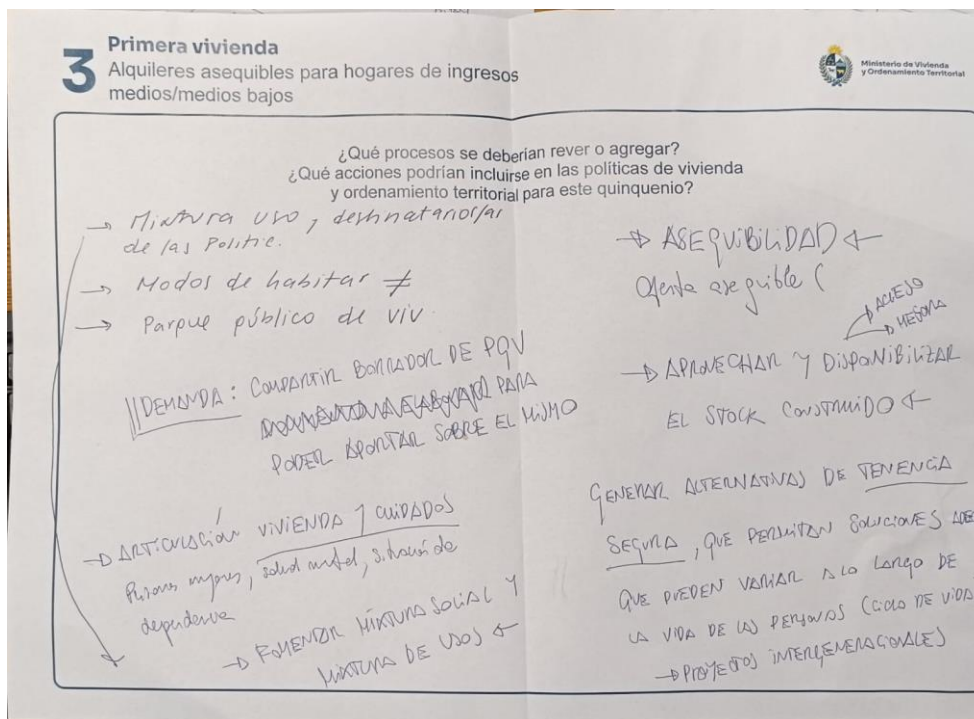 3
Primera vivienda
Alquileres asequibles para hogares de ingresos
medios/medios bajos
Ministerio de Vivienda
y Ordenamiento Territorial
¿Qué procesos se deberían rever o agregar?
¿Qué acciones podrían incluirse en las políticas de vivienda
y ordenamiento territorial para este quinquenio?
→ Mixtura uso,
de las Politic.
→ Modos de habitar ≠
→ Parque público de viv.
DEMANDA: COMPARTIR BORRADOR DE PQV
PARA
PODER APORTAR SOBRE EL MISMO
→ ARTICULACIÓN VIVIENDA Y CUIDADOS
mayores, salud mental, situación de
dependencia
→ FOMENTAR MIXTURA SOCIAL Y
MIXTURA DE USOS ←
→ ASEQUIBILIDAD ←
Oferta asequible (
ACCESO
MEJORA
→ APROVECHAR Y DISPONIBILIZAR
EL STOCK CONSTRUIDO ←
GENERAR ALTERNATIVAS DE TENENCIA
SEGURA, QUE PERMITAN SOLUCIONES ADE
QUE PUEDEN VARIAR A LO LARGO DE
LA VIDA DE LAS PERSONAS (CICLO DE VIDA
→ PROYECTOS INTERGENERACIONALES